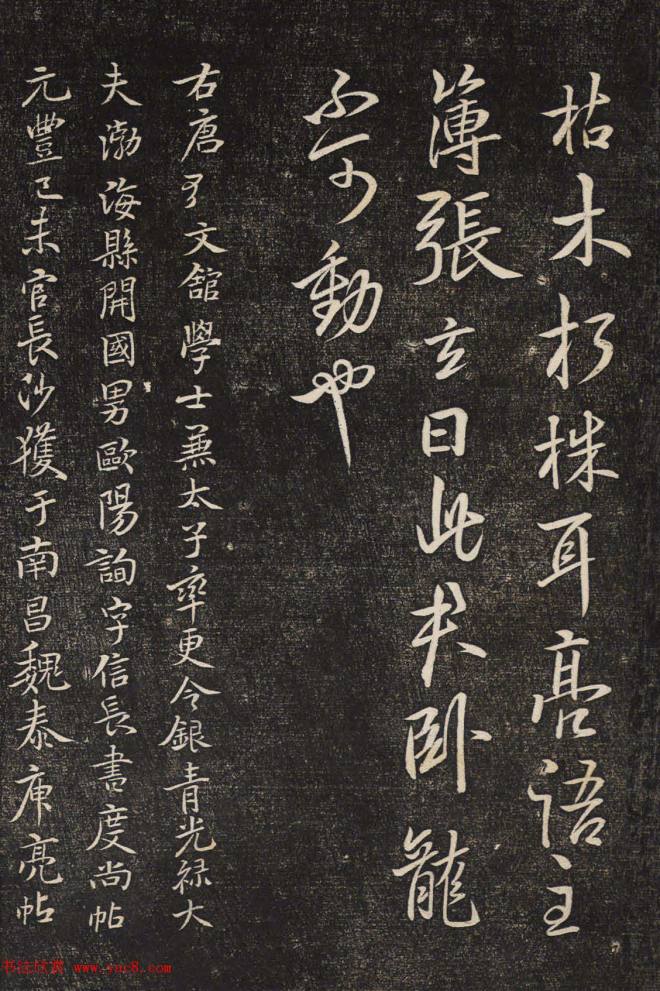 枯木朽株耳亮語主
簿張玄曰此君卧龍
不可動也
右唐弘文舘學士兼太子率更令銀青光禄大
夫渤海縣開國男歐陽詢字信長書度尚帖
元豐己未官長沙獲于南昌魏泰庾亮帖
书法欣赏 www.yac8.com